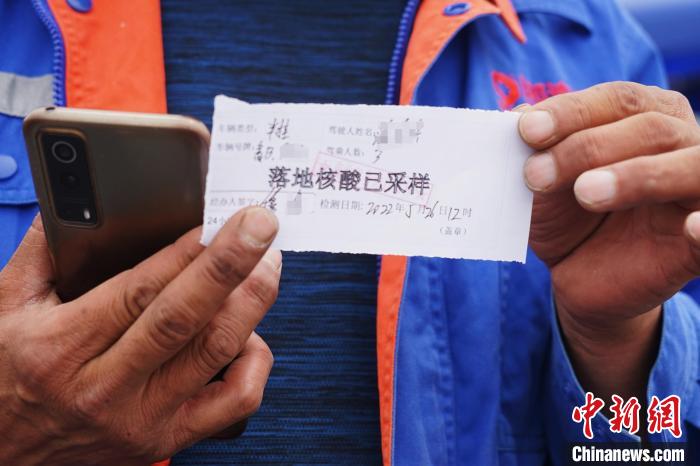 车辆类型: 半挂 驾驶人姓名
车辆号牌: 驾乘人数: 3
落地核酸已采样
经办人签字: 检测日期: 2022年5月26日12时
24小 (盖章)
中新网
Chinanews.com